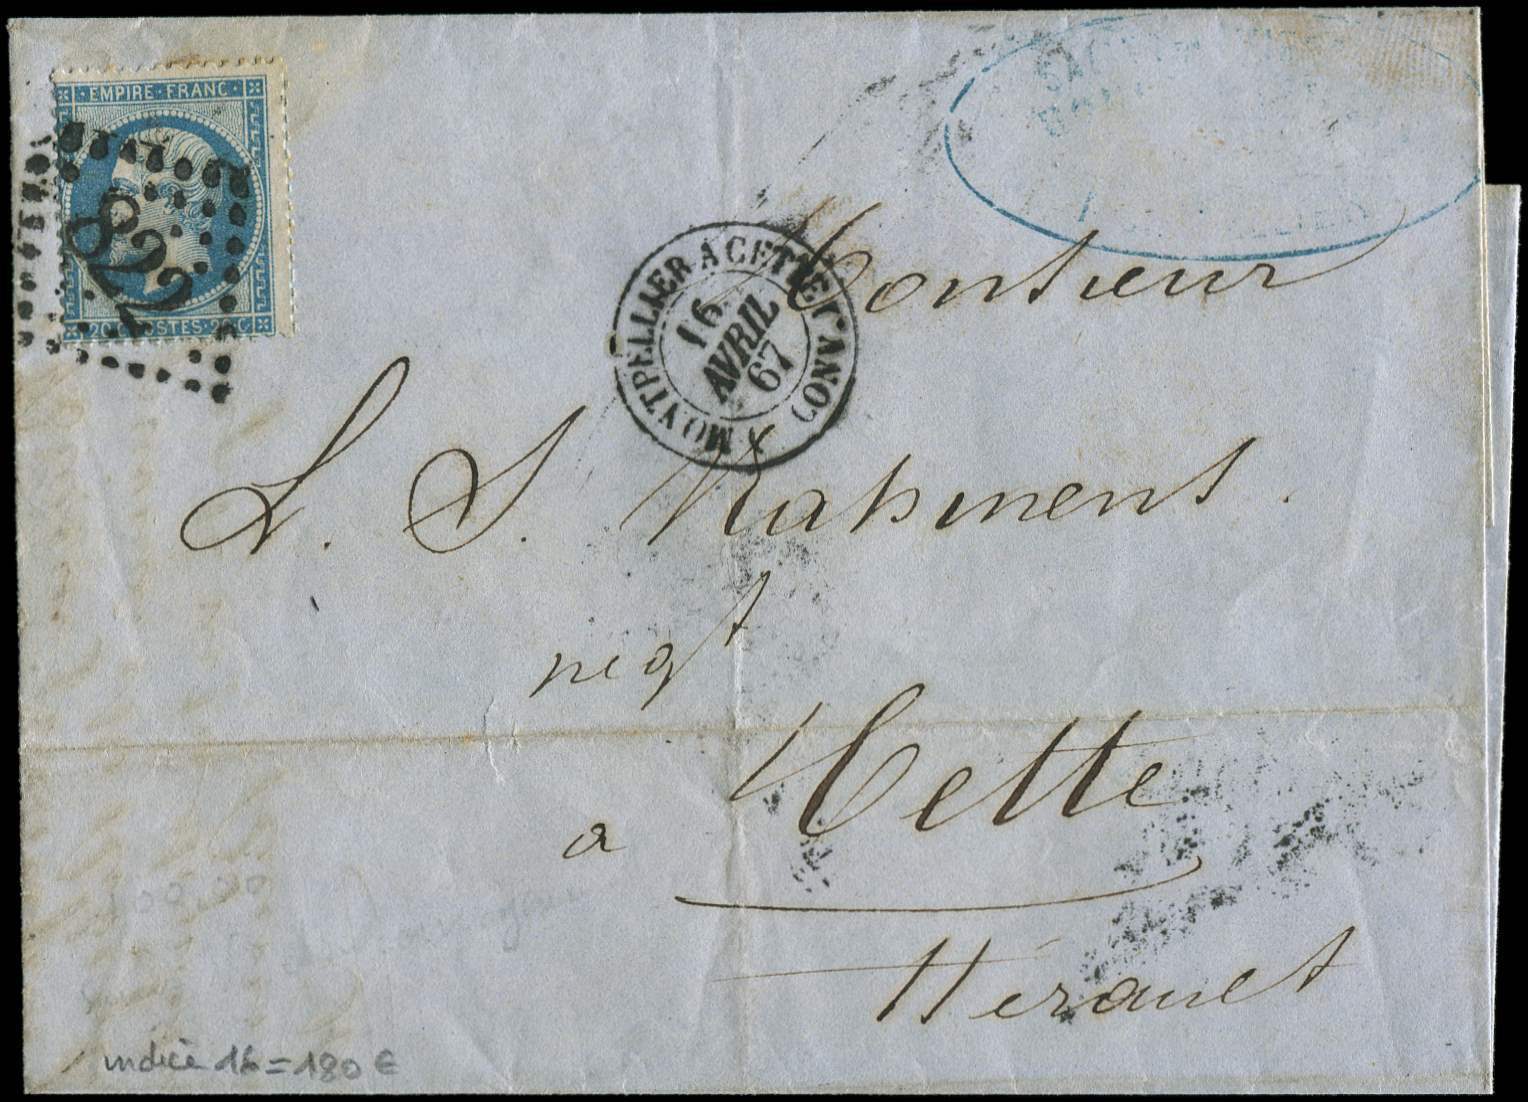 EMPIRE·FRANC·
822
20 C POSTES 20 C
MONTPELLIER A CETTE 1º CONV.
16
AVRIL
67
Monsieur
L. S.
negt
a Cette
Hérault
indice 16 = 180 €